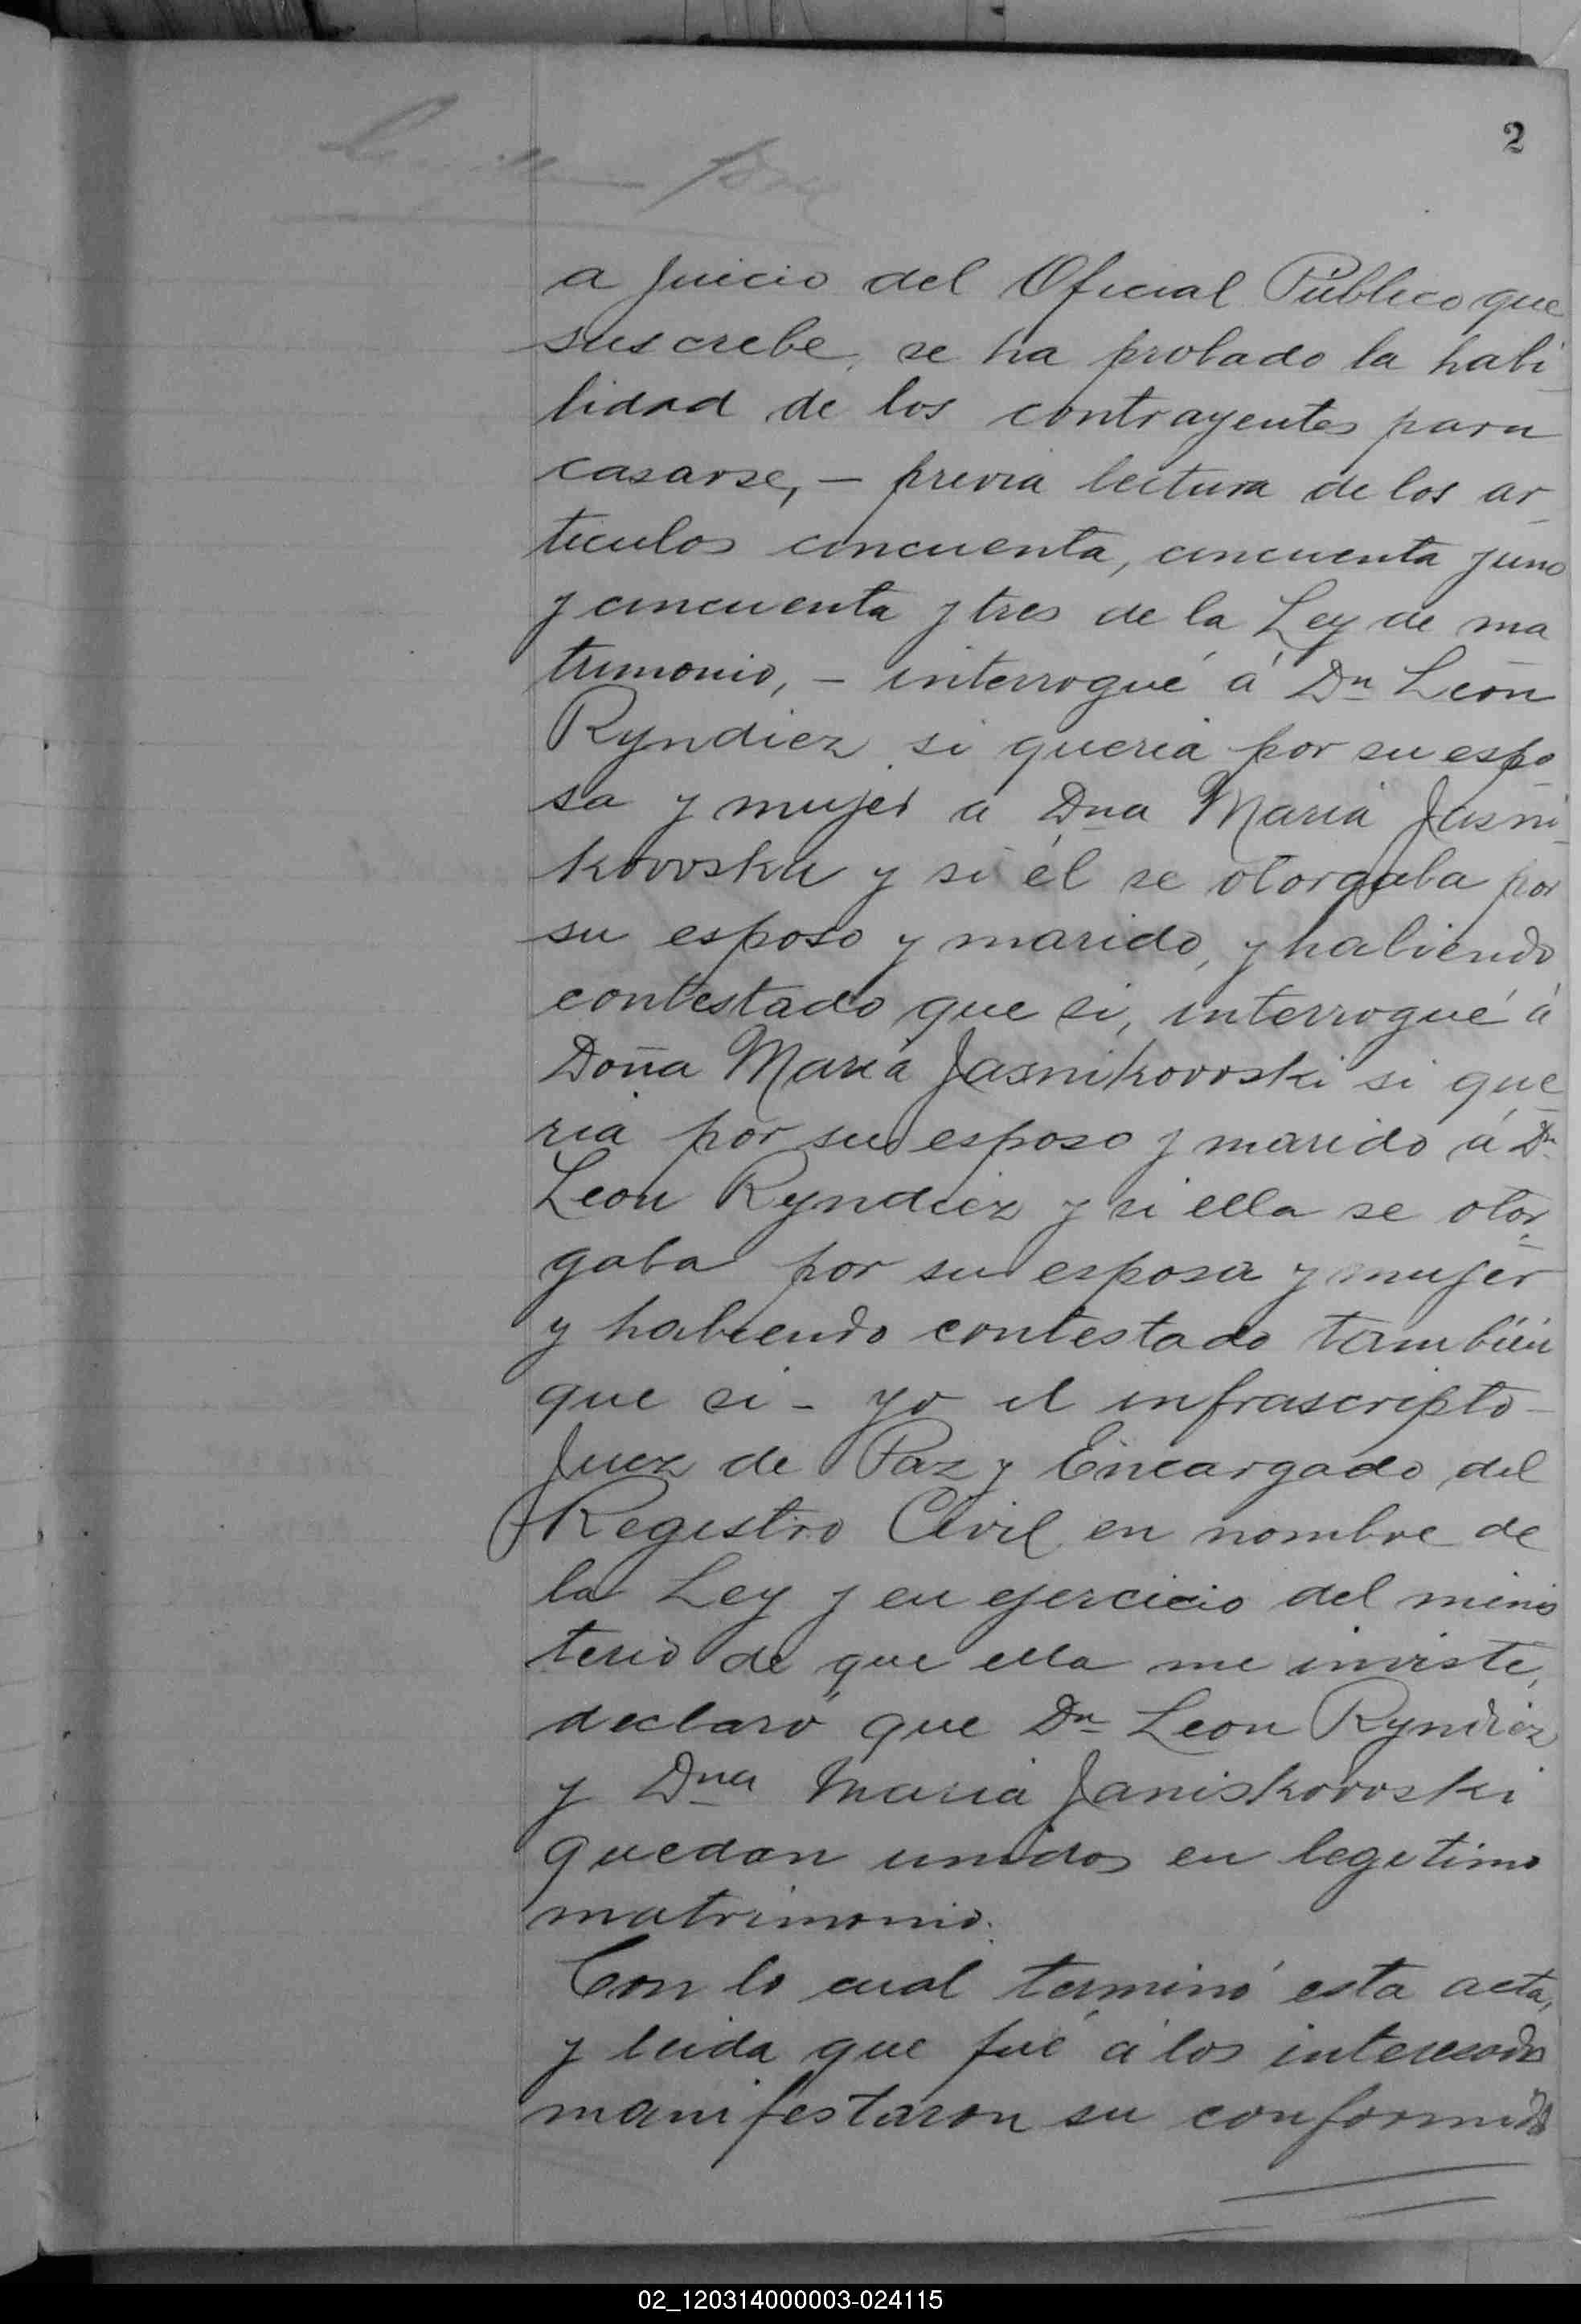 2
a juicio del Oficial Público que
suscribe, se ha probado la habi
lidad de los contrayentes para
casarse, – previa lectura de los ar
ticulos cincuenta, cincuenta y uno
y cincuenta y tres de la Ley de ma
trimonio, – interrogué á Dn León
Ryndiez si queria por su espo
sa y mujer a Dna Maria Jasni
kowska y si él se otorgaba por
su esposo y marido, y habiendo
contestado que si, interrogué á
Doña Maria Jasnikowski si que
ria por su esposo y marido á Dn
Leon Ryndiez y si ella se otor
gaba por su esposa y mujer
y habiendo contestado también
que si – yo el infrascripto
Juez de Paz y Encargado del
Registro Civil en nombre de
la Ley y en ejercicio del minis
terio de que ella me inviste,
declaro" que Dn Leon Ryndiez
y Dna Maria Janiskowski
quedan unidos en legitimo
matrimonio.
Con lo cual terminó esta acta,
y leida que fué á los interesados
manifestaron su conformidd
02_120314000003-024115